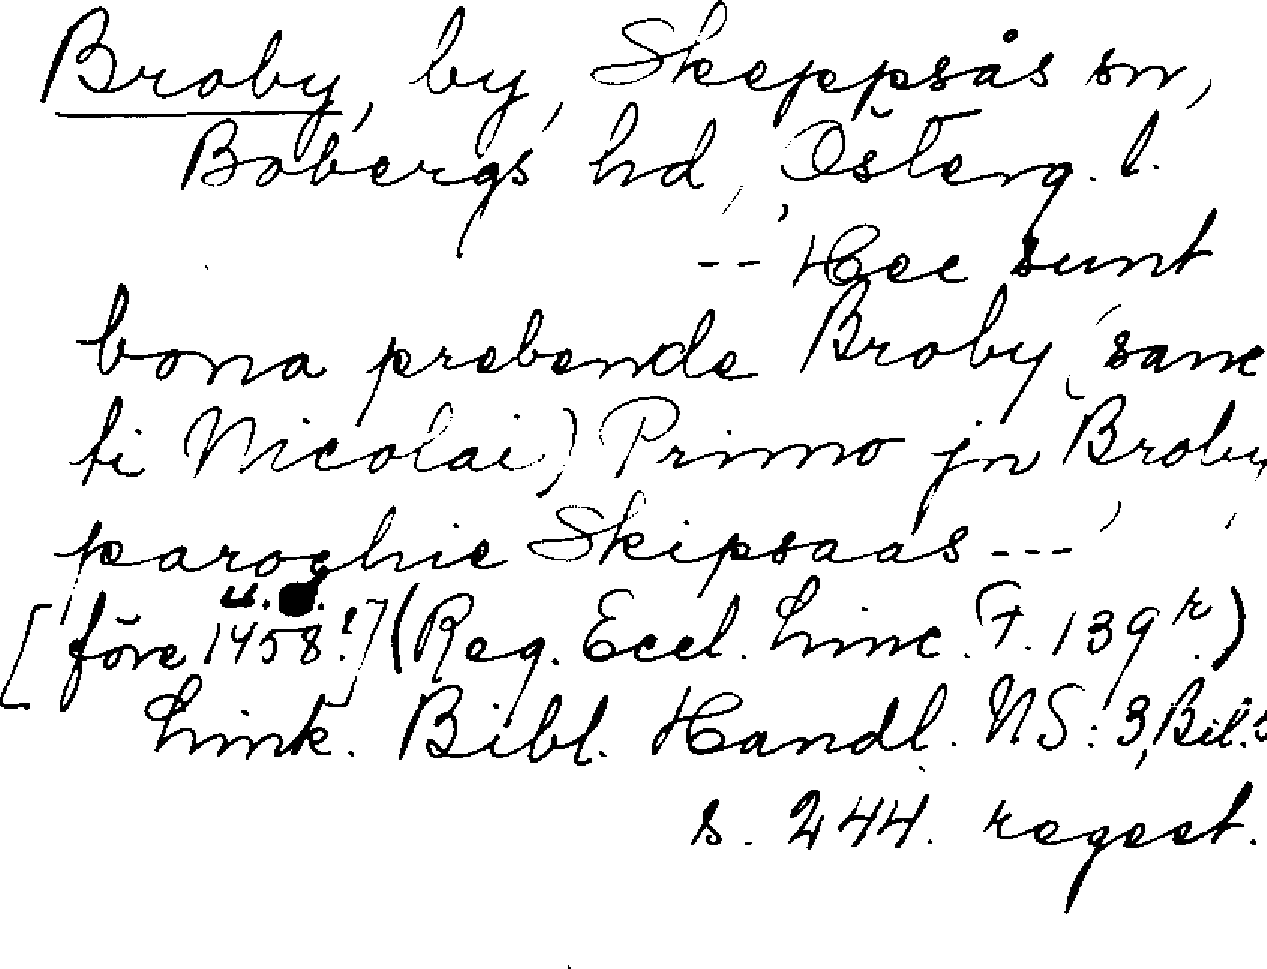 Broby, by, Skeppsås sn,
Bobergs hd, Österg. l.
-- Hec sunt
bona prebende Broby (sanc
ti Nicolai) Primo jn Broby,
paroghie Skipsaas ---
u.
[före 1458!] (Reg. Eccl. Linc. F. 139r.)
Link. Bibl. Handl. NS: 3, Bil.
s. 244. regest.